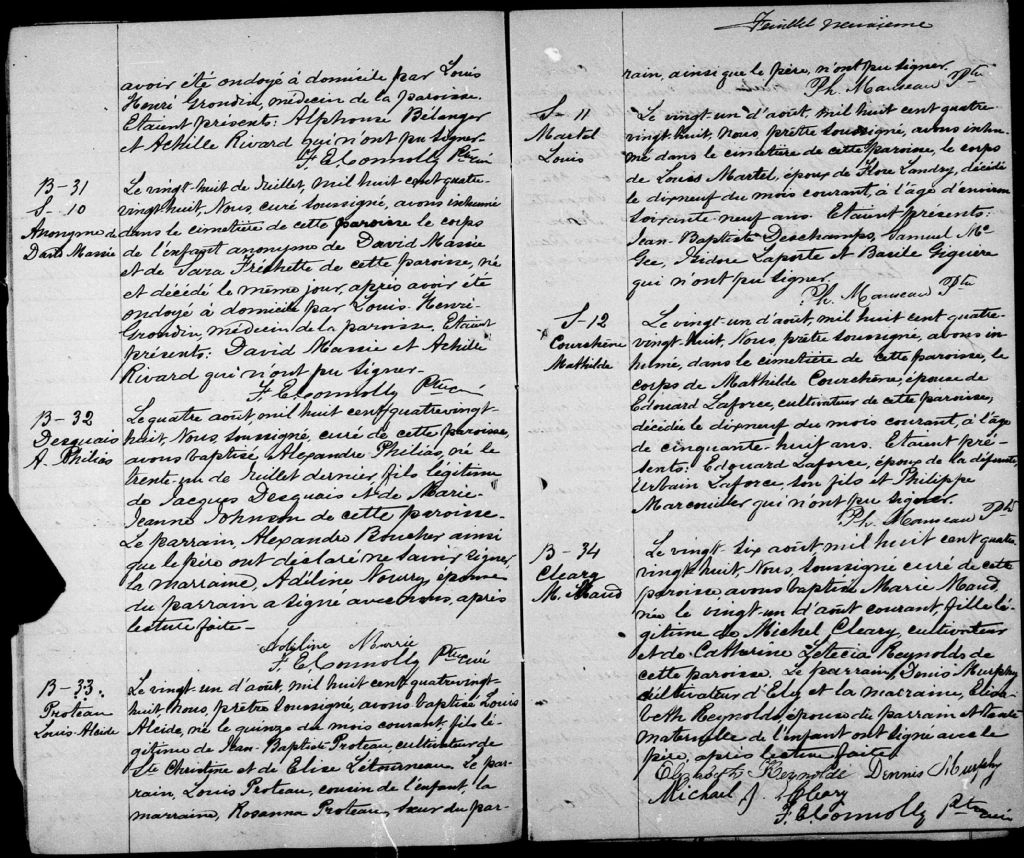 avoir été ondoyé à domicile par Louis
Henri Grondin, médecin de la paroisse.
Etaient présents: Alphonse Bélanger
et Achille Rivard qui n'ont pu signer.
F. E. Connolly Ptre curé
B-31
S-10
Anonyme de
David Massie
Le vingt-huit de Juillet, mil huit cent quatre-
vingt-huit, Nous, curé soussigné, avons inhumé
dans le cimetière de cette paroisse le corps
de l'enfant anonyme de David Massie
et de Sara Fréchette de cette paroisse, né
et décédé le même jour, après avoir été
ondoyé à domicile par Louis-Henri-
Grondin, médecin de la paroisse. Etaient
présents: David Massie et Achille
Rivard qui n'ont pu signer-
F. E. Connolly Ptre curé
B-32
Desquais
A. Philias
Le quatre août, mil huit cent quatrevingt-
huit, Nous, soussigné, curé de cette paroisse,
avons baptisé Alexandre Philias, né le
trente-un de Juillet dernier, fils légitime
de Jacques Desquais et de Marie-
Jeanne Johnson de cette paroisse.
Le parrain, Alexandre Boucher ainsi
que le père ont déclaré ne savoir signer,
la marraine, Adéline Nourry, épouse
du parrain a signé avec nous, après
lecture faite-
Adeline
F. E. Connolly Ptre curé
B-33.
Proteau
Louis-Alcide
Le vingt un d'août, mil huit cent quatrevingt-
huit, Nous, prêtre soussigné, avons baptisé Louis
Alcide, né le quinze du mois courant, fils lé-
gitime de Jean-Baptiste Proteau, cultivateur de
Ste Christine et de Elise Létourneau. Le par-
rain, Louis Proteau, cousin de l'enfant, la
marraine, Rosanna Proteau, sœur du par-
Feuillet neuvième
rain, ainsi que le père, n'ont pu signer.
Ph. Manseau Ptre
S-11
Martel
Louis
Le vingt-un d'août, mil huit cent quatre-
vingt-huit, Nous, prêtre soussigné, avons inhu-
mé dans le cimetière de cette paroisse, le corps
de Louis Martel, époux de Flore Landry, décédé
le dixneuf du mois courant, à l'âge d'environ
soixante-neuf ans. Etaient présents:
Jean-Baptiste Deschamps, Samuel Mc
Gee, Isidore Laporte et Basile Giguère
qui n'ont pu signer.
Ph. Manseau Ptre
S-12
Courchène
Mathilde
Le vingt-un d'août, mil huit cent quatre-
vingt-huit, Nous, prêtre soussigné, avons in-
humé, dans le cimetière de cette paroisse, le
corps de Mathilde Courchène, épouse de
Edouard Laforce, cultivateur de cette paroisse,
décédée le dixneuf du mois courant, à l'âge
de cinquante-huit ans. Etaient pré-
sents: Edouard Laforce, époux de la défunte,
Urbain Laforce, son fils et Philippe
Marcouiller qui n'ont pu signer.
Ph. Manseau Ptre
B-34
Cleary
M. Maud
Le vingt-six août mil huit cent quatre-
vingt-huit, Nous, soussigné curé de cette
paroisse, avons baptisé Marie Maud,
née le vingt-un d'août courant, fille lé-
gitime de Michel Cleary, cultivateur
et de Catherine Léticia Reynolds de
cette paroisse. Le parrain, Denis Murphy
cultivateur d'Ely et la marraine, Elisa-
beth Reynolds, épouse du parrain et tante
maternelle de l'enfant ont signé avec le
père, après lecture faite.
Elizabeth Reynolds Dennis Murphy
Michael J. Cleary
F. E. Connolly Ptre curé